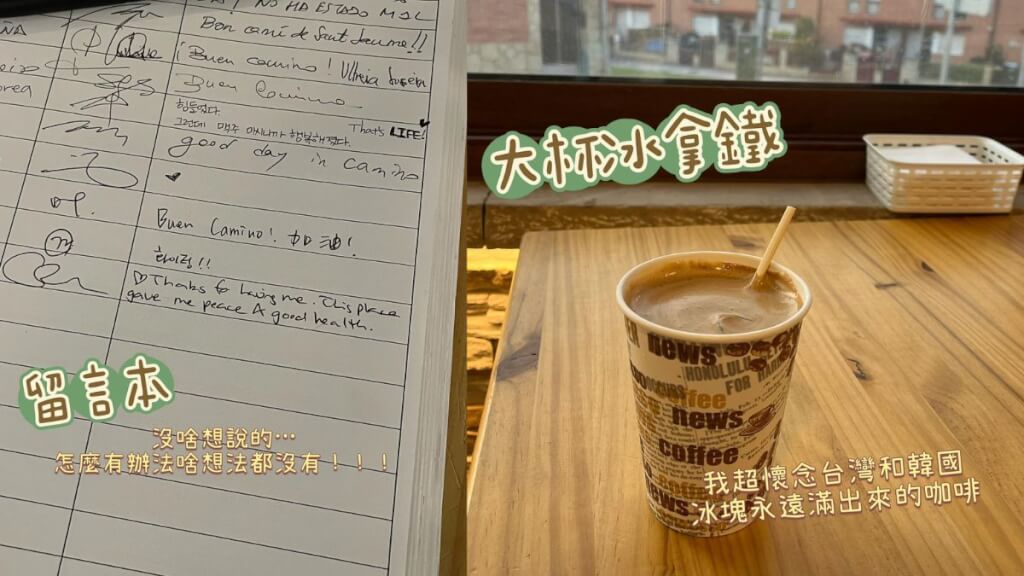 NO HA ESTADO MAL
Bon camí de Sant Jaume!!
¡Buen camino! Ultreia
Buen Camino
힘들었다.
그런데 맥주 마시니까 행복해졌다.
That's LIFE!
good day in camino
Buen Camino! 加油!
화이팅!!
♡ Thanks for having me. This place
gave me peace & good health.
留言本
沒啥想說的…
怎麼有辦法啥想法都沒有！！！
大杯冰拿鐵
news
HONOLULU
FOR
coffee
news
coffee
news
我超懷念台灣和韓國
冰塊永遠滿出來的咖啡